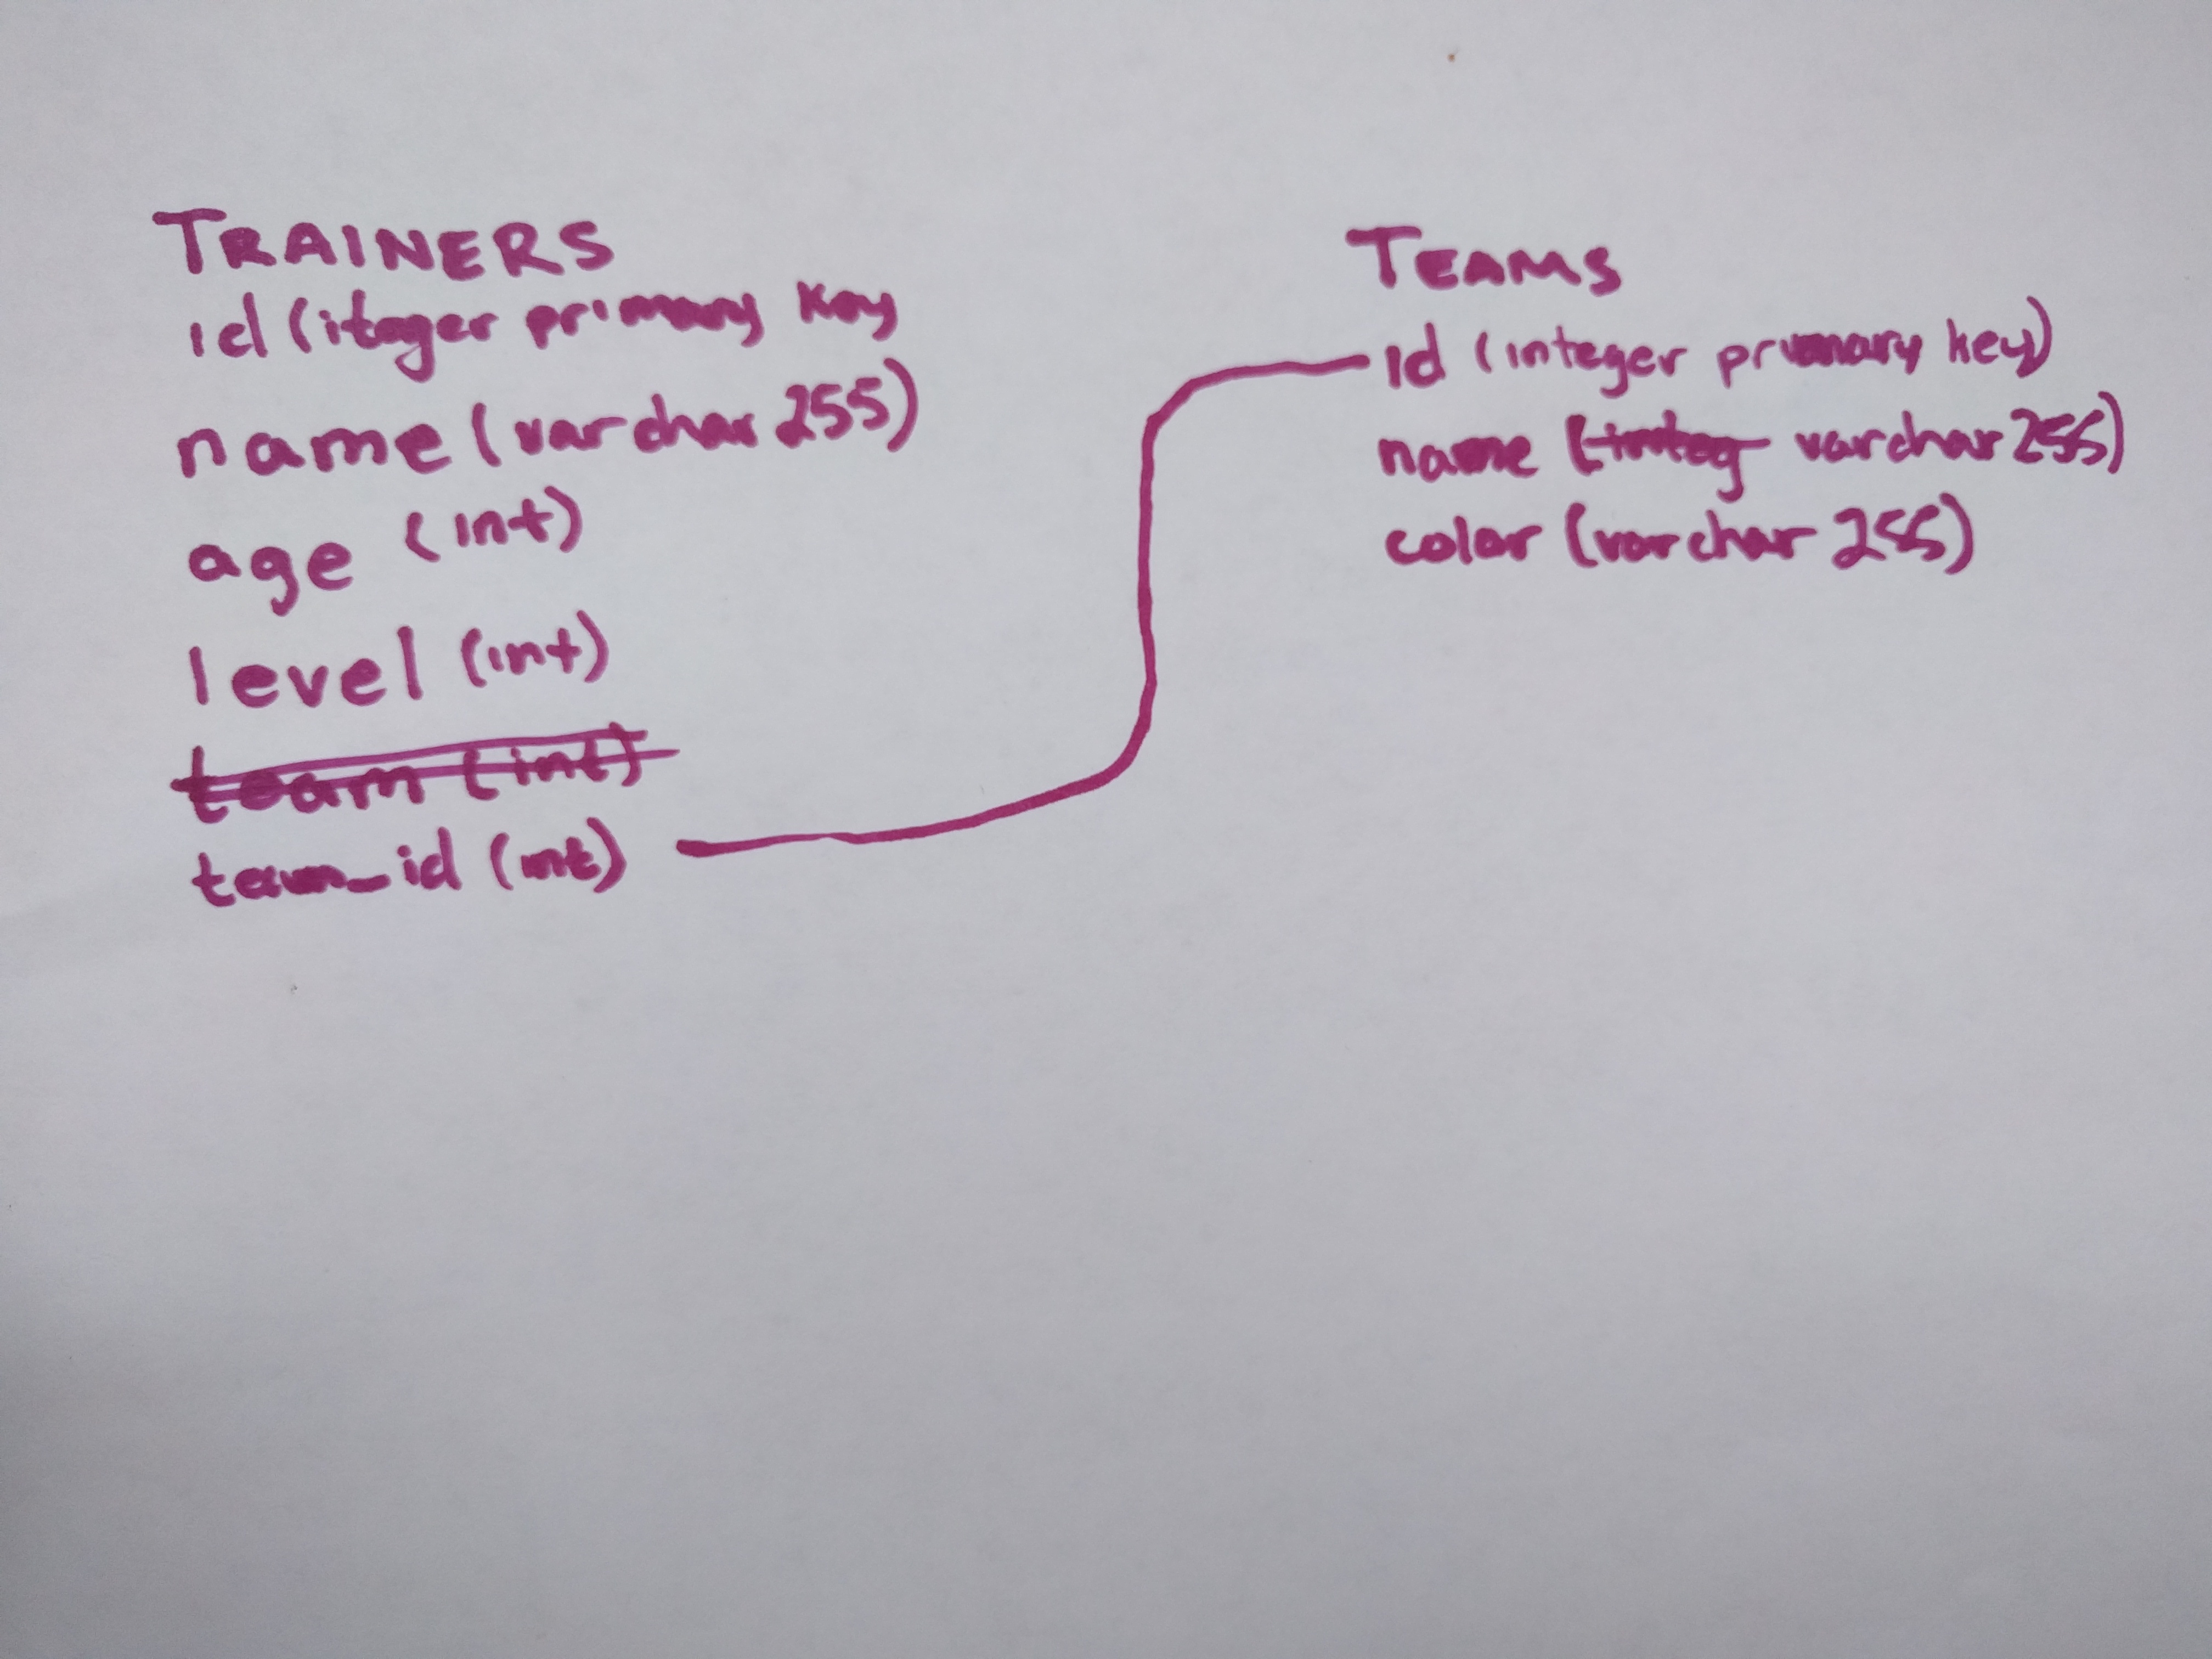 TRAINERS
id (iteger primary key
name (varchar 255)
age (int)
level (int)
team (int)
team_id (int)
TEAMS
id (integer primary key)
name (integ varchar 255)
color (varchar 255)